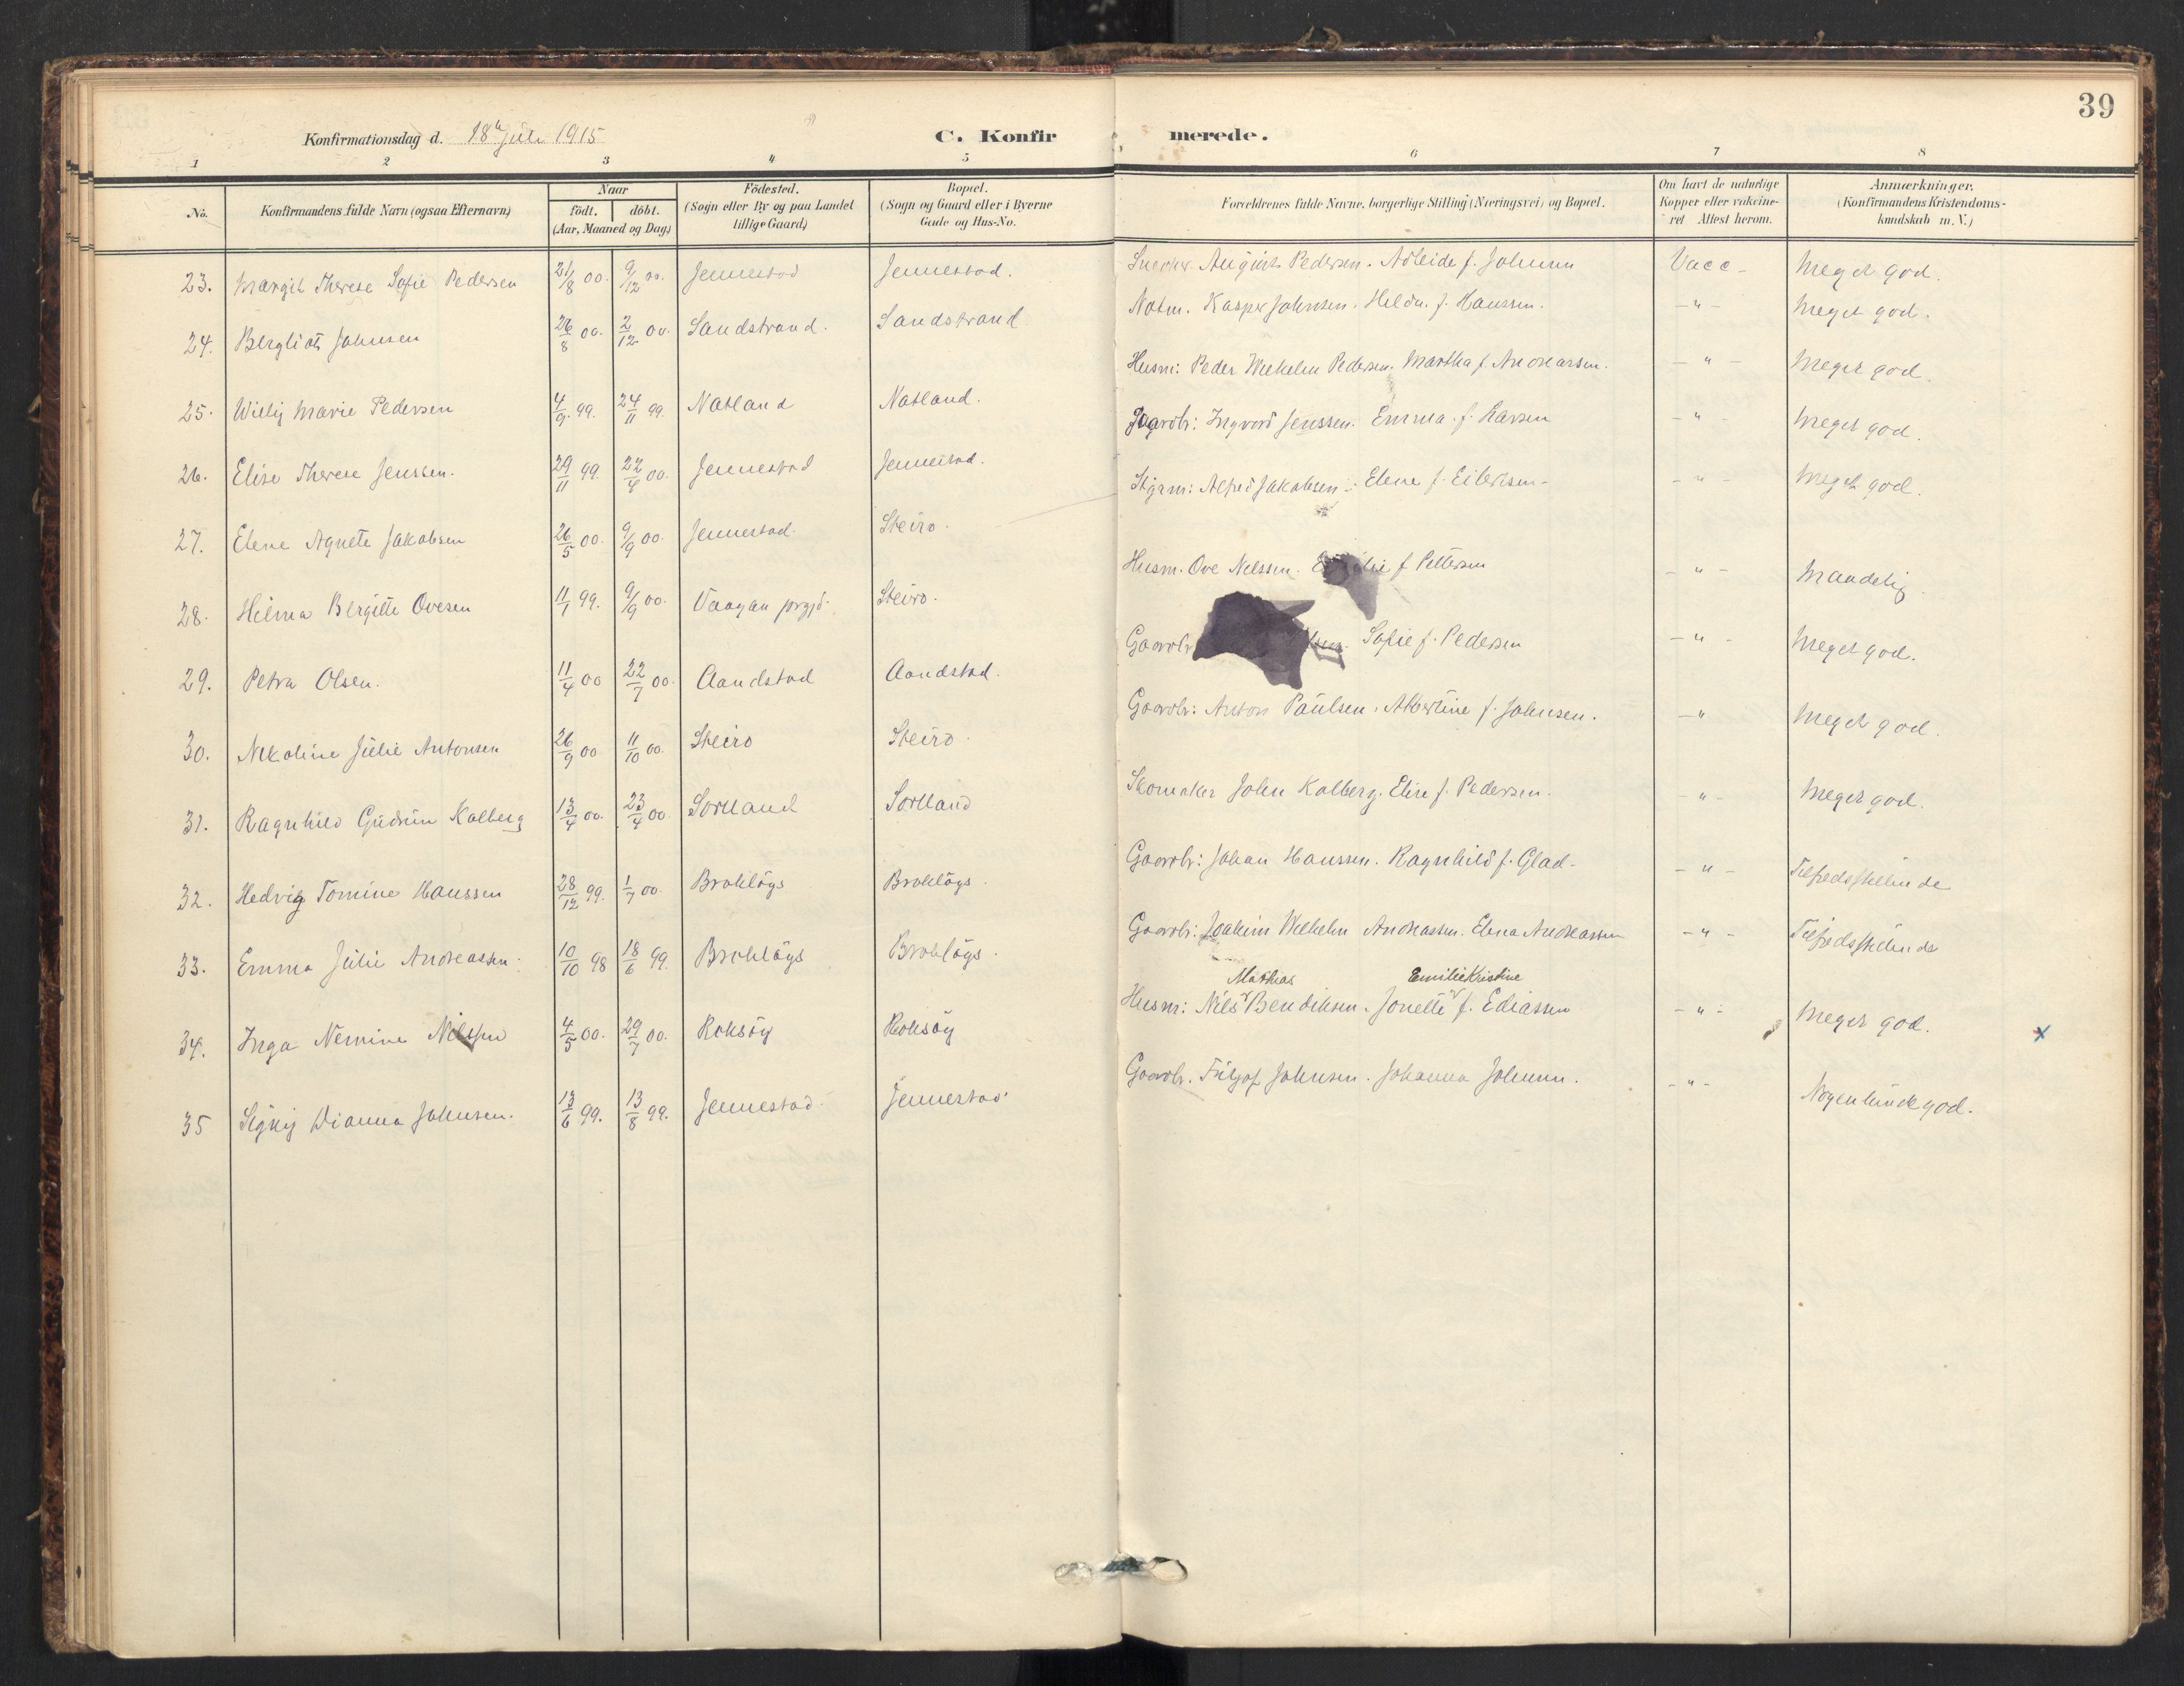 39
Konfirmationsdag d. 18de Juli 1915
C. Konfirmerede.
1 2 3 4 5 6 7 8
No. Konfirmandens fulde Navn (ogsaa Efternavn) Naar födt. döbt. (Aar, Maaned og Dag) Födested. (Sogn eller By og paa Landet tillige Gaard) Bopæl. (Sogn og Gaard eller i Byerne Gade og Hus-No. Forældrenes fulde Navne, borgerlige Stilling (Næringsvei) og Bopæl. Om havt de naturlige Kopper eller vakcineret Attest herom. Anmærkninger. (Konfirmandens Kristendomskundskab m. V.)
23. Margit Therese Sofie Pedersen 21/8 00. 9/12 00. Jennestad Jennestad. August Pedersen. Adleide f. Johnsen Vacc - Meget god.
24. Bergliot Johnsen 26/8 00. 2/12 00. Sandstrand. Sandstrand Kasper Johnsen. f. Hanssen. - " - Meget god.
25. Marie Pedersen 4/9 99. 24/11 99. Natland Natland. Husm: Peder Wilhelm Pedersen. Martha f. Andreassen. - " - Meget god.
26. Elise Therese Jenssen. 29/11 99. 22/4 00. Jennestad Jennestad. Gaardbr: Ingvard Jenssen. Emma f. Larsen - " - Meget god.
27. Elene Agnete Jakobsen 26/5 00. 9/9 00. Jennestad. Steiro. Alfred Jakobsen. Elene f. Eilertsen - - " - Meget god.
28. Hilma Bergitte Ovesen 11/1 99. 9/9 00. Vaagan prgjd. Steiro. Husm. Ove Nilssen. f Pettersen - " - Maadelig.
29. Petra Olsen. 11/4 00 22/7 00. Aandstad Aandstad. Gaardbr Sofie f. Pedersen - " - Meget god.
30. Nikoline Julie Antonsen 26/9 00 11/10 00. Steiro Steiro. Gaardbr: Anton Paulsen. Albertine f. Johnsen. - " Meget god.
31. Ragnhild Gudrun Kolberg 13/4 00. 23/4 00. Sortland Sortland Skomaker John Kolberg. Elise f. Pedersen. - " - Meget god.
32. Hedvig Tomine Hanssen 28/12 99. 1/7 00. Brokløys Brokløys. Gaardbr: Johan Hanssen. Ragnhild f. Glad - - " - Tilfredsstillende
33. Emma Julie Andreassen. 10/10 98 18/6 99. Brokløys Brokløys. Gaardbr: Joakim Wilhelm Andreassen. Elena Andreassen - " - Tilfredsstillende
Mathias Emilie Kristine
34. Inga Nemine Nilssen 4/5 00. 29/7 00. Roksøy Roksøy Husm: Nils Bendiksen. Jonette f. Ediassen - " - Meget god. x
35 Signy Dianna Johnsen. 13/6 99. 13/8 99. Jennestad. Jennestad. Gaardbr. Fritjof Johnsen. Johanna Johnsen. - " - Nogenlunde god.